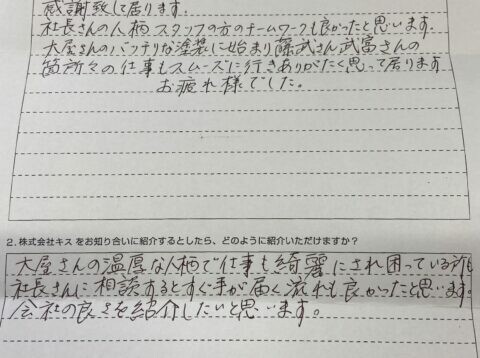 感謝致して居ります。
社長さんの人柄スタッフの方のチームワークも良かったと思います。
大屋さんのバッチリな塗装に始まり藤武さん武富さんの
箇所々の仕事もスムーズに行きありがたく思って居ります
お疲れ様でした。
2. 株式会社キス をお知り合いに紹介するとしたら、どのように紹介いただけますか？
大屋さんの温厚な人柄で仕事も綺麗にされ困っている
社長さんに相談するとすぐ手が届く流れも良かったと思います。
会社の良さを紹介したいと思います。